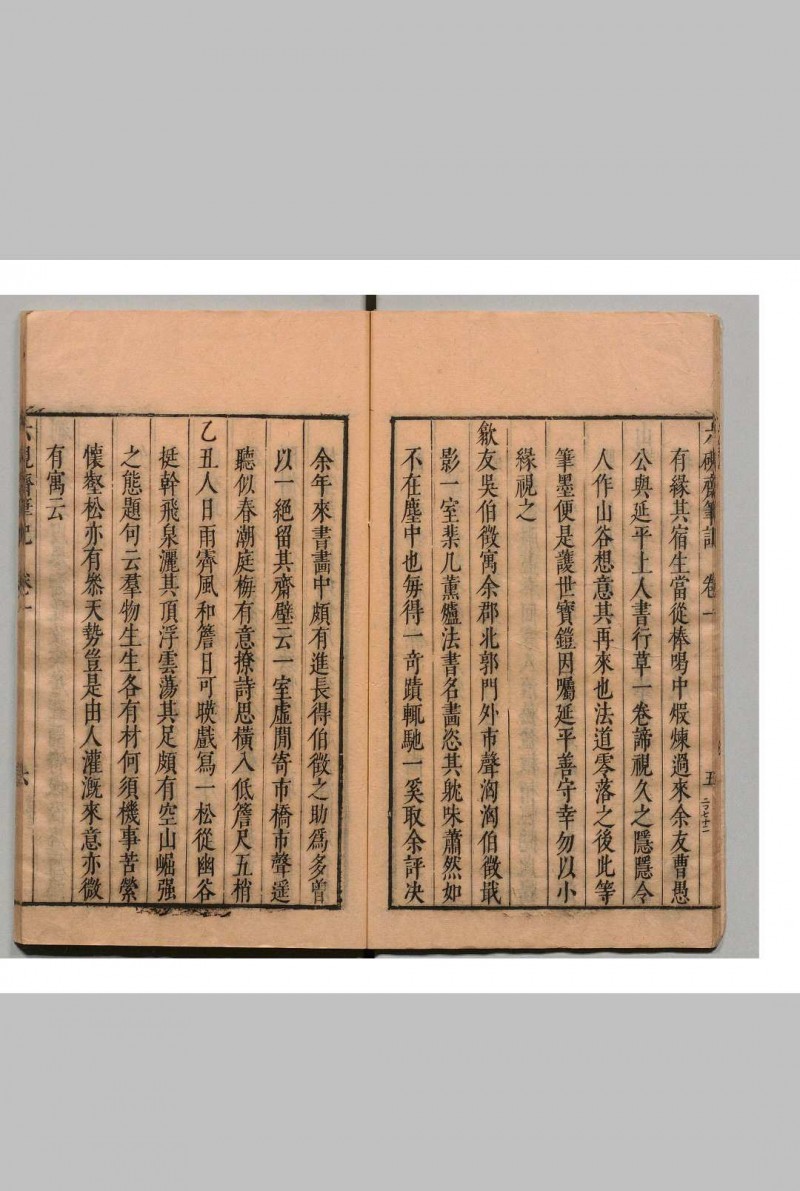 六硯齋筆記 卷一 五
有緣其宿生當從棒喝中煅煉過來余友曹愚
公與延平上人書行草一卷諦視久之隱隱令
人作山谷想意其再來也法道零落之後此等
筆墨便是護世寶鎧因囑延平善守幸勿以小
緣視之
歙友吳伯徵寓余郡北郭門外市聲洶洶伯徵戢
影一室棐几薰爐法書名畵恣其躭味蕭然如
不在塵中也每得一奇蹟輒馳一奚取余評决
余年來書畵中頗有進長得伯徵之助爲多曽
以一絕留其齋壁云一室虛閒寄市橋市聲遥
聽似春潮庭梅有意撩詩思橫入低簷尺五梢
乙丑人日雨霽風和簷日可暎戲寫一松從幽谷
挺幹飛泉灑其頂浮雲蕩其足頗有空山崛强
之態題句云羣物生生各有材何須機事苦縈
懷壑松亦有叅天勢豈是由人灌溉來意亦微
有寓云
六硯齋筆記 卷一 六